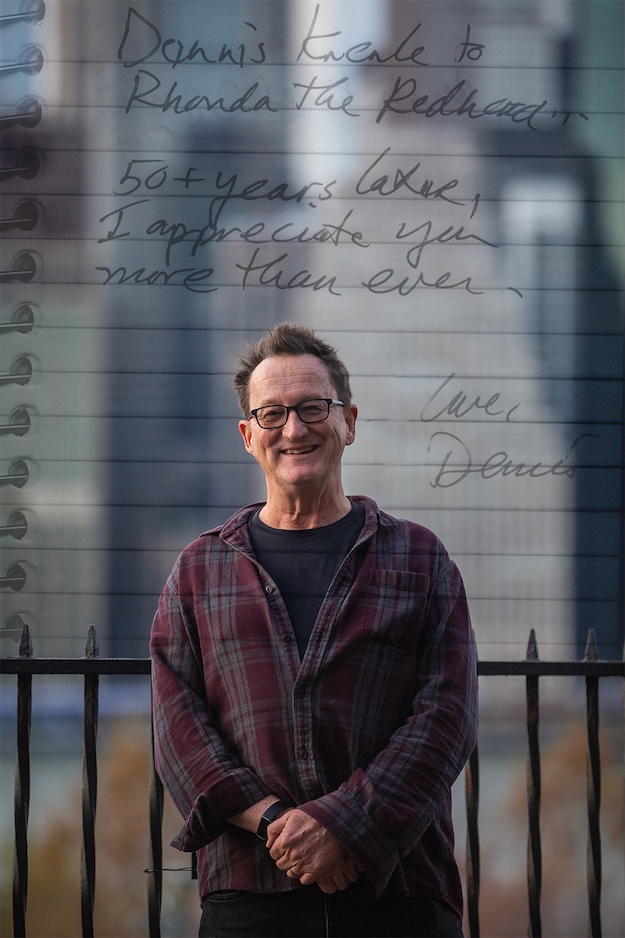 Dennis Kneale to
Rhonda the Redhead...
50+ years later,
I appreciate you
more than ever.
Love,
Dennis